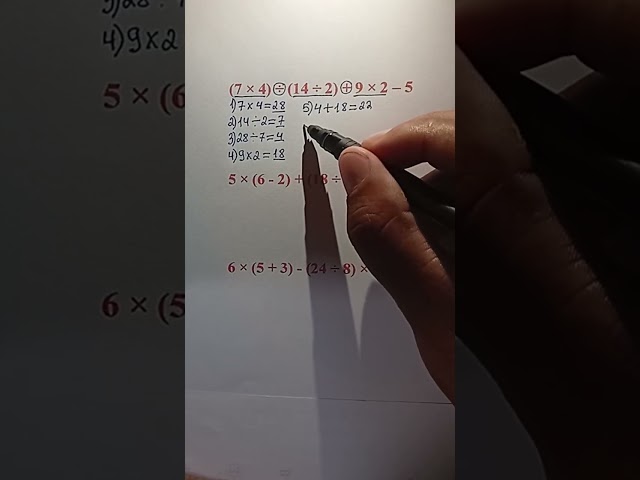 (7 × 4) ÷ (14 ÷ 2) + 9 × 2 – 5
1) 7 × 4 = 28
2) 14 ÷ 2 = 7
3) 28 ÷ 7 = 4
4) 9 × 2 = 18
5) 4 + 18 = 22
5 × (6 - 2) + (18 ÷
6 × (5 + 3) - (24 ÷ 8) ×